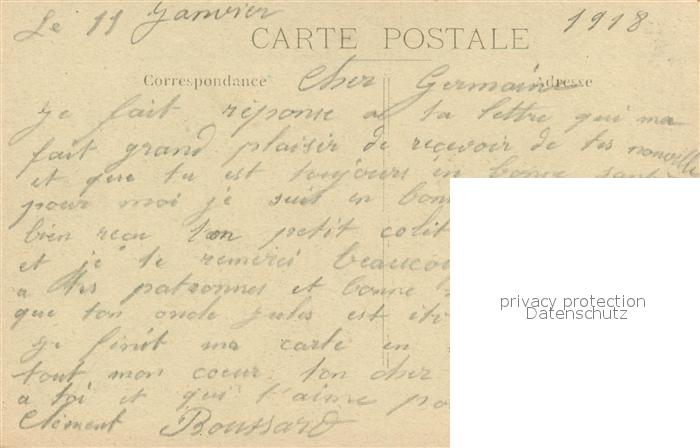 Le 11 Janvier 1918
CARTE POSTALE
Correspondance Cher Germain Adresse
je fait réponse a ta lettre qui ma
fait grand plaisir de recevoir de tes nouvelle
et que tu est toujours en bonne santé
pour moi je suit en bon
bien reçu ton petit colit
et je te remerci beaucou
a tes patronnes et bonne
que ton oncle jules est
je finit ma carte en
tout mon coeur ton cher
a toi et qui t'aime po
Clément Boussard
privacy protection
Datenschutz